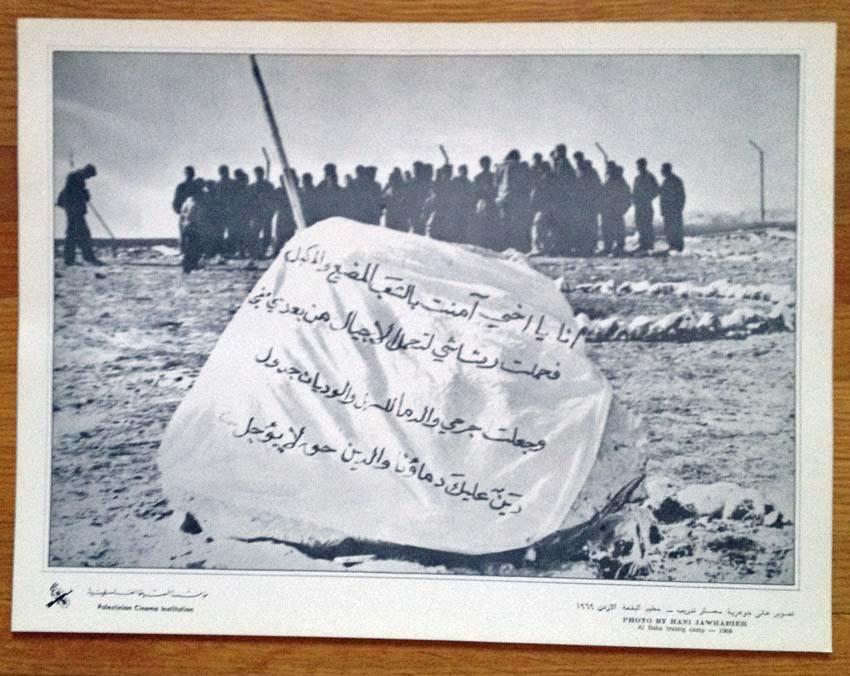 انا يا اخي آمنت بالشعب المضيع والمكبل
فحملت رشاشي لتحمل الاجيال من بعدي
وجعلت جرحي والدما للسهل والوديان جدول
دين عليك دماؤنا والدين حق لا يؤجل
مؤسسة السينما الفلسطينية
Palestinian Cinema Institution
تصوير هاني جوهرية معسكر تدريب — مخيم البقعة الاردن ١٩٦٩
PHOTO BY HANI JAWHARIEH
camp — 1969